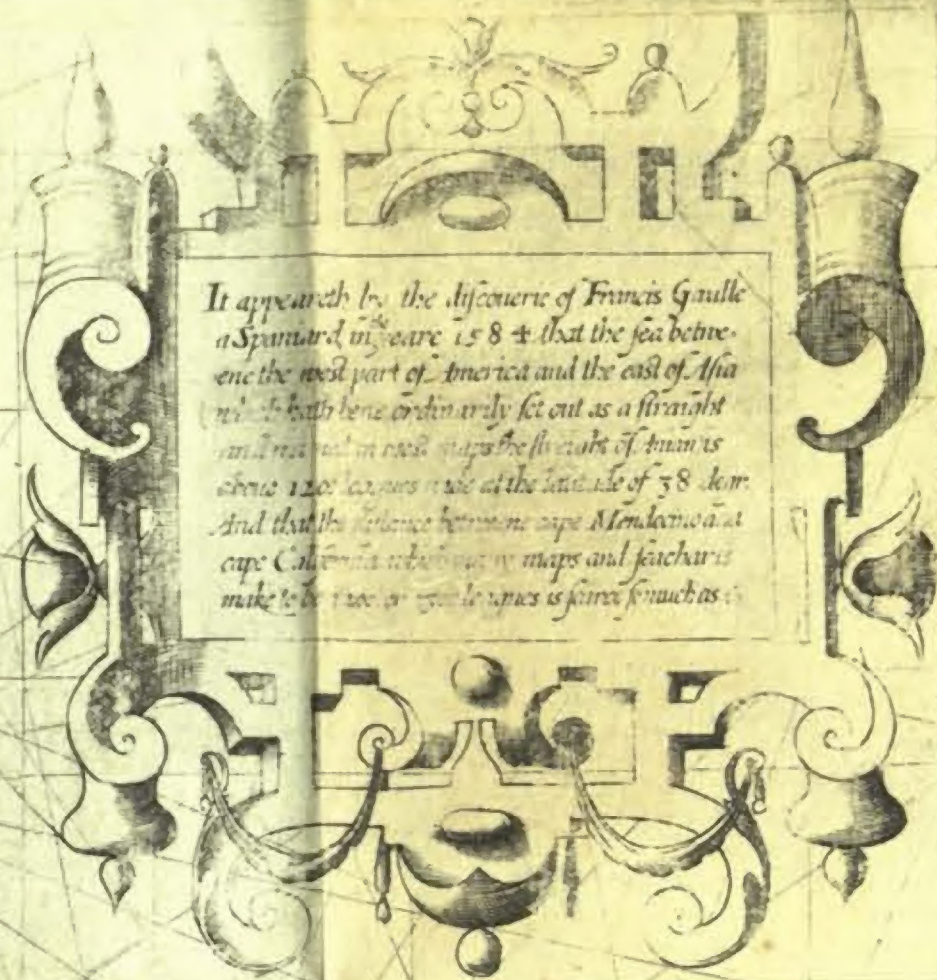 It appeareth by the discouerie of Francis Gaulle
a Spaniard, in the yeare 1584 that the sea betwe-
ene the west part of America and the east of Asia
hath bene ordinarily set out as a straight
and in most maps the streight of Anian is
aboue 1200 leagues wide at the latitude of 38 degr.
And that the distance betwene cape Mendocino and
cape California which many maps and seacharts
make to be leagues is scarce so much as